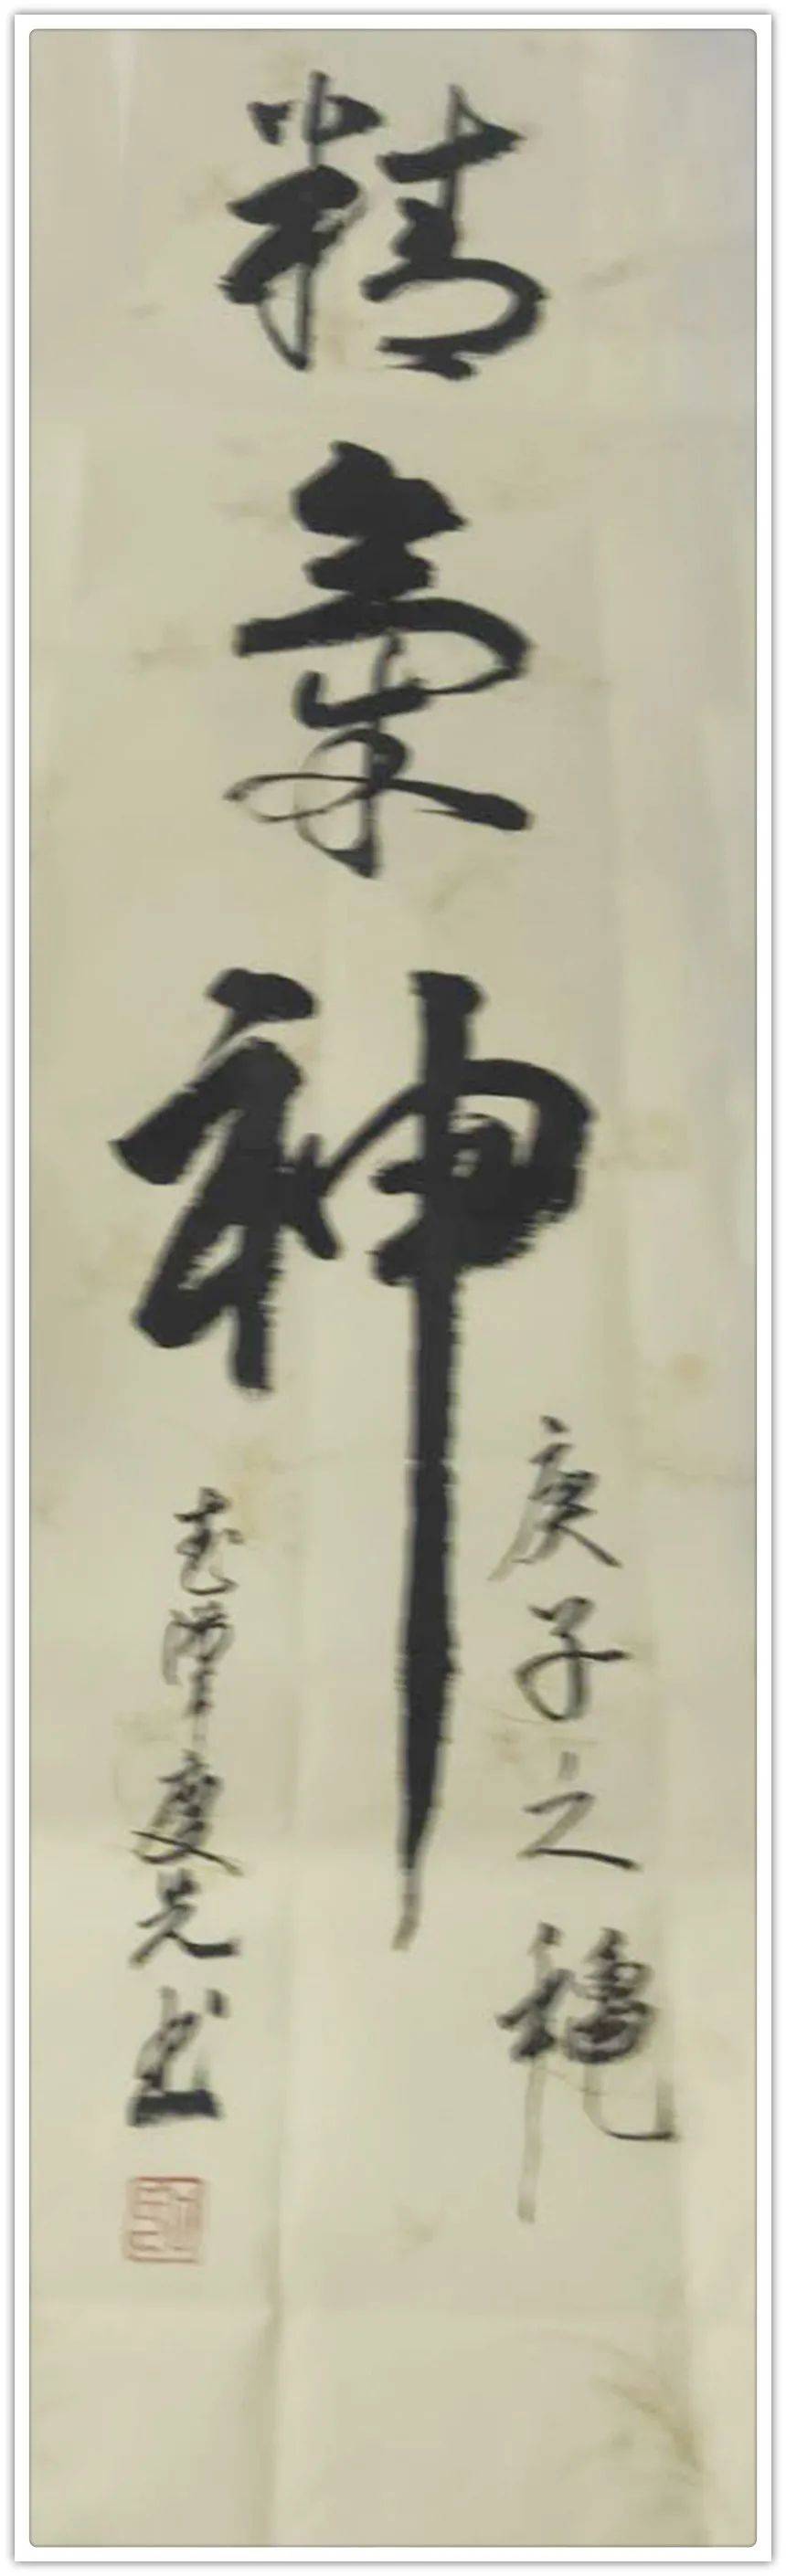 精氣神
庚子之穐
度先书